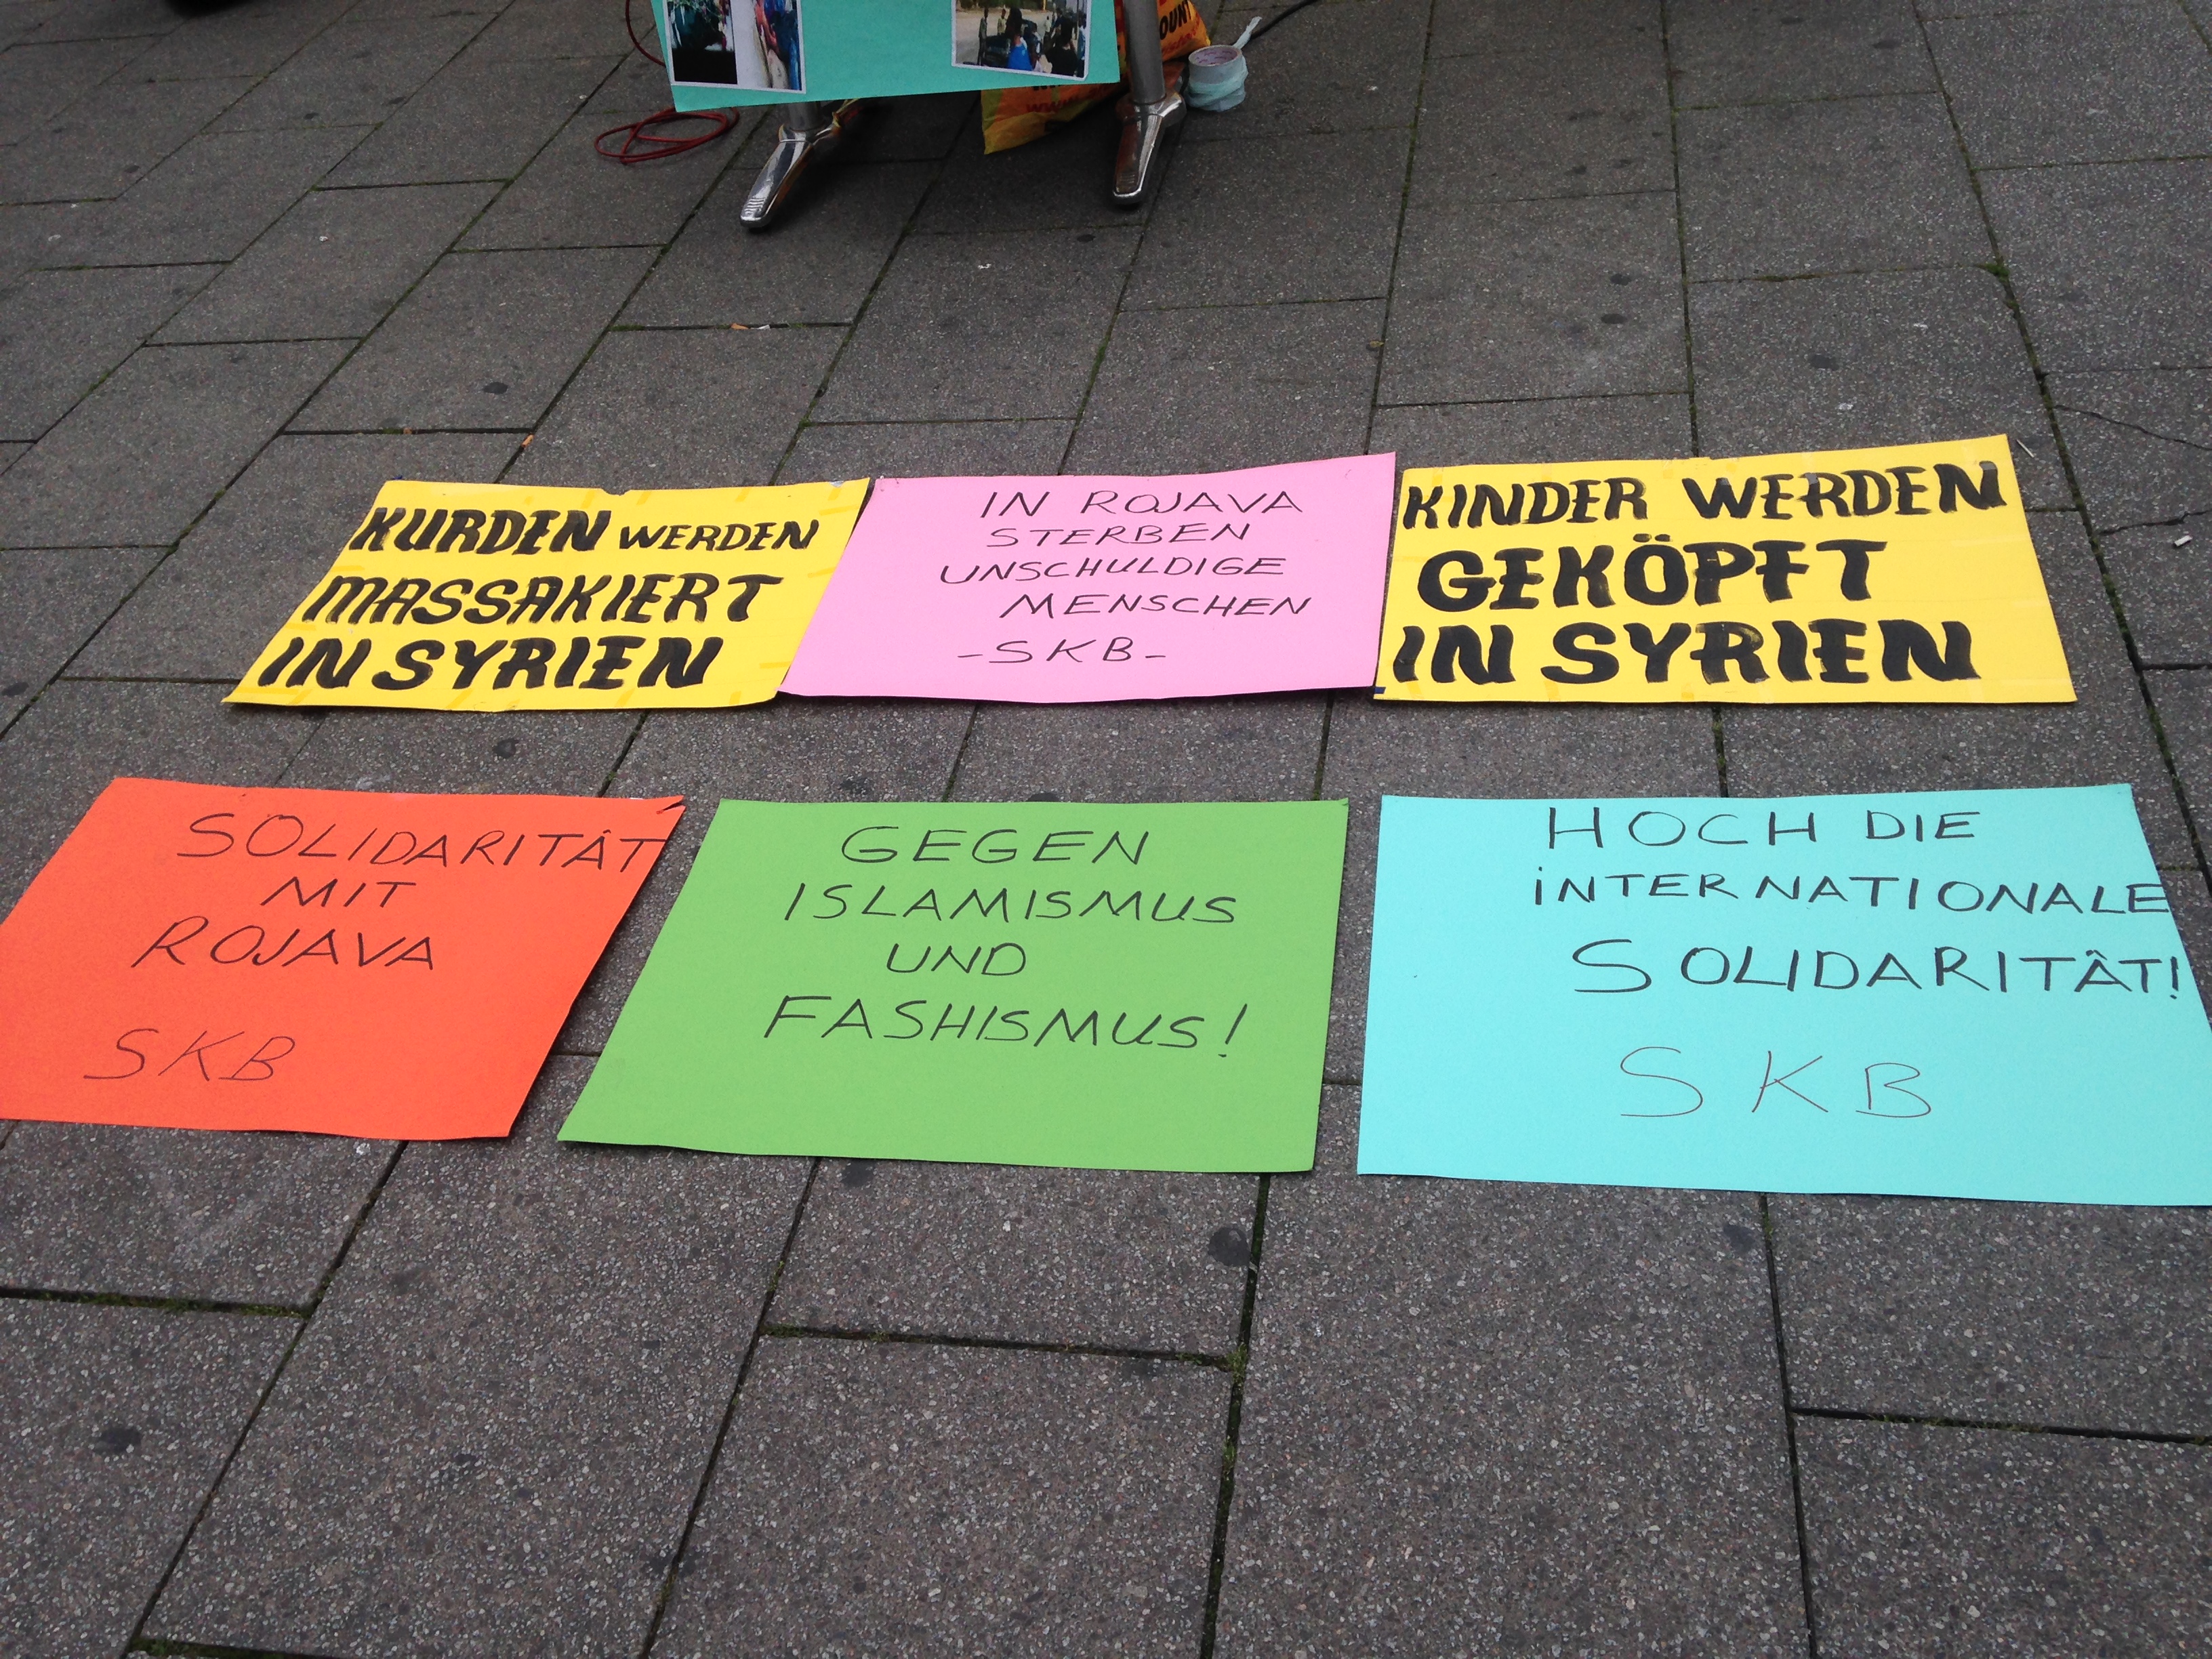 OUNT
KURDEN WERDEN
MASSAKIERT
IN SYRIEN
IN ROJAVA
STERBEN
UNSCHULDIGE
MENSCHEN
-SKB-
KINDER WERDEN
GEKÖPFT
IN SYRIEN
SOLIDARITÄT
MIT
ROJAVA
SKB
GEGEN
ISLAMISMUS
UND
FASHISMUS!
HOCH DIE
INTERNATIONALE
SOLIDARITÄT!
SKB